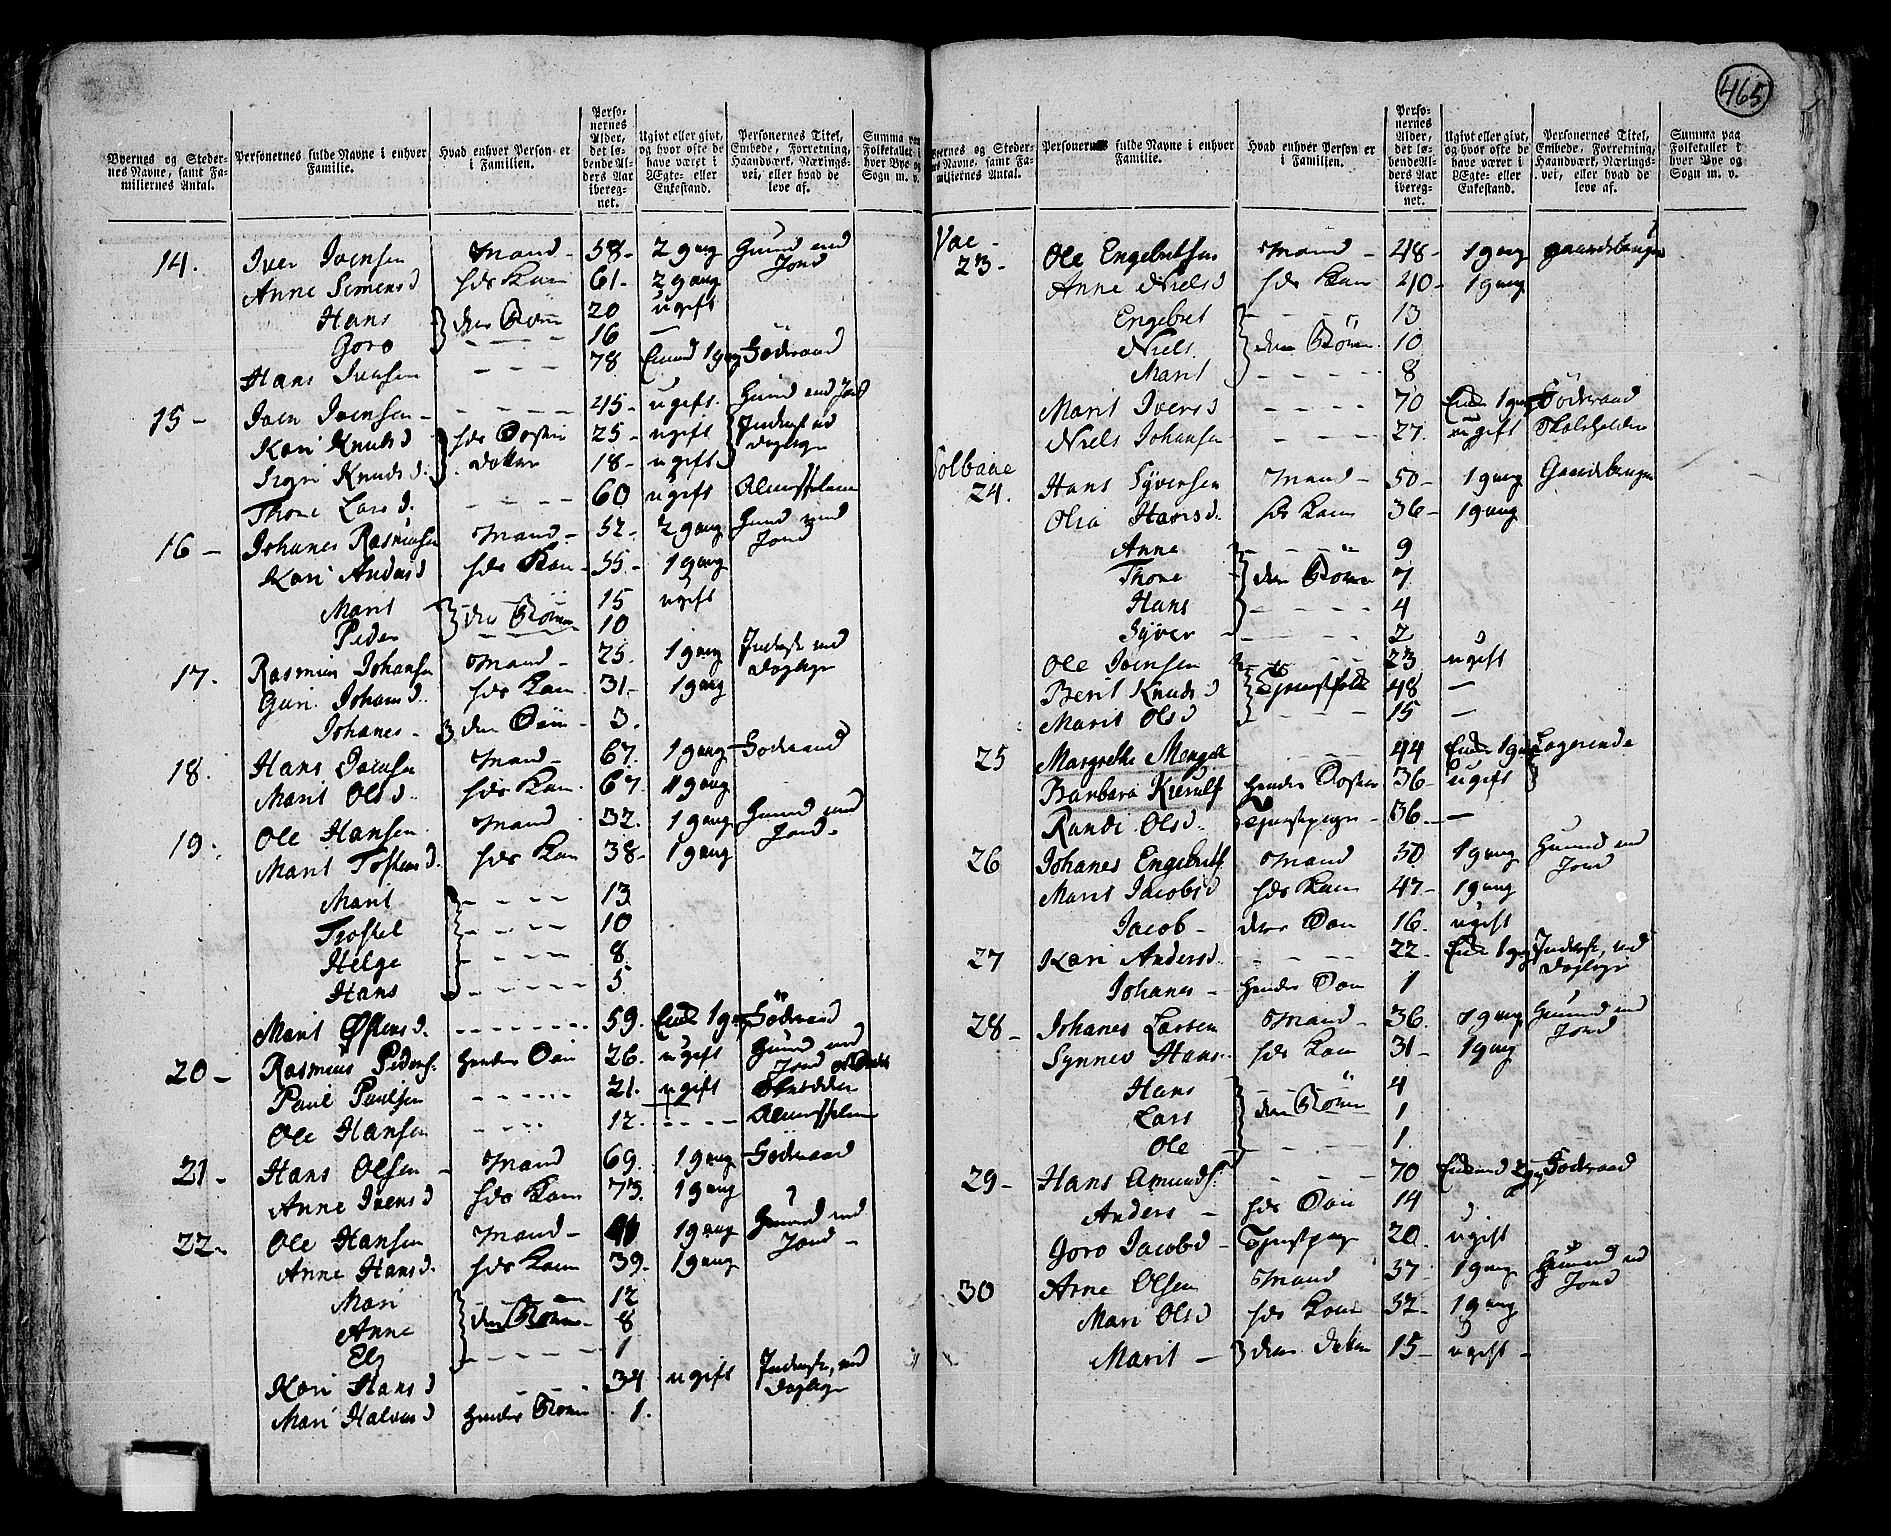 465
Byernes og Steder-
nes Navne, samt Fa-
miliernes Antal.
Personernes fulde Navne i enhver
Familie.
Hvad enhver Person er
i Familien.
Perso-
nernes
Alder,
det lø-
bende Al-
ders Aar
ibereg-
net.
Ugivt eller givt,
og hvor ofte de
have været i
Ægte- eller
Enkestand.
Personernes Titel,
Embede, Forretning,
Haandværk, Nærings-
vei, eller hvad de
leve af.
Summa paa
Folketallet i
hver Bye og
Sogn m. v.
14. Iver Iversen Mand - 58 - 2 gang Huusmd med Jord
Anne Simensd hds Kone 61 - 2 gang
Hans } deres Børn 20 ugift
Goro - - - 16 —
Hans Iversen - - - 78 Enkemd 1 gang Föderaad
15 - Iven Ivensen - - - - 45 - ugift. Huusmd med Jord
Kari Knudsd } hds Søster 25 - ugift Inderste ved
Sigri Knudsd. } døttre 18 - ugift Dagleje
Thone Larsd. - - - 60 ugift Almisselem
16 - Johanes Rasmusen Mand - 52 - 2 gang Huusmd med Jord
Kari Andersd hds Kone - 55 - 1 gang
Marit } deres Børn 15 ugift
Peder 10
17. Rasmus Johansen Mand - 25. 1 gang Inderste ved
Guri Johansd. hds Kone 31 - 1 gang Dagleje
Johanes - } deres Søn - 3.
18. Hans Iversen Mand - 67. 1 gang Föderaad
Marit Olsd. hds Kone. 67. 1 gang
19. Ole Hansen. Mand 32. 1 gang Huusmd med
Marit Tostensd. hds Kone 38 - 1 gang Jord -
Marit - - - - 13
Trostel - - - - 10
Helge - - - - 8
Hans - - - - 5
Marit Østensd. - - - - 59. Enke 1 gang Föderaad
20 - Rasmus Pedersen hendes Søn 26. ugift Huusmd med Jord
Paul Paulsen - - - - 21. ugift Skrædder
Ole Hansen - - - - 12. - - - - Almisselem
21 - Hans Olsen - Mand 69. 1 gang Föderaad
Anne Iversd hds Kone 73. 1 gang
22 - Ole Hansen Mand - 1 gang Huusmd med
Anne Hansd. hds Kone 39. 1 gang Jord -
Mari 12
Anne } deres Børn - 8
Eli - - - - 1
Kari Hansd - - - 34 ugift Inderste, ved
Mari Halvorsd hendes Børn 1. Dagleje
Byernes og Steder-
nes Navne, samt Fa-
miliernes Antal.
Personernes fulde Navne i enhver
Familie.
Hvad enhver Person er
i Familien.
Perso-
nernes
Alder,
det lø-
bende Al-
ders Aar
ibereg-
net.
Ugivt eller givt,
og hvor ofte de
have været i
Ægte- eller
Enkestand.
Personernes Titel,
Embede, Forretning,
Haandværk, Nærings-
vei, eller hvad de
leve af.
Summa paa
Folketallet i
hver Bye og
Sogn m. v.
23 - Ole Engebretsen Mand - 48 - 1 gang gaardsbruger
Anne Nielsd hds Kone 40 - 1 gang
Engebret - - - - 13
Niels. } deres Børn 10
Marit - - - - 8
Marit Iversd - - - - 70 Enke 1 gang Föderaad
Niels Johansen - - - - 27. ugift Skoleholder
24. Hans Syversen Mand - 50 - 1 gang Gaardsbruger
Olia Hansd. hds Kone 36 - 1 gang
Anne - - - - 9
Thone } deres Børn 7
Hans - - - - 4
Syver - - - - 2
Ole Ivensen - - - - 23 ugift
Berit Knudsd } Tjenestfolk 48 —
Marit Olsd - - - - 15 —
25 Margrethe - - - - 44 Enke 1 gang Logerende
Barbara Kierulf hendes Søster 36 - ugift
Randi Olsd. Tjenstpige - 36 - —
26 Johanes Engebretsen Mand 50 1 gang Huusmd med
Marit Jacobsd hds Kone 47 - 1 gang Jord
Jacob - deres Søn 16. ugift
27 Kari Andersd. - - - - 22. Enke 1 gang Inderste, ved
Johanes - hendes Søn 1 Dagleje
28 - Johanes Larsen Mand - 36. 1 gang Huusmd med
Synnev Hans. hds Kone 31 - 1 gang Jord
Hans - - - - 4
Lars } deres Børn 1
Ole - - - - 1.
29 - Hans Amundsen - - - - 70 Enkemd 2 gang Föderaad
Anders - hds Søn 14
Goro Jacobsd - Tjenstpige 20. ugift
30 Arne Olsen Mand 37 - 1 gang Huusmd med
Mari Olsd hds Kone 32 - 1 gang Jord
Marit - } deres datter 15 - ugift -